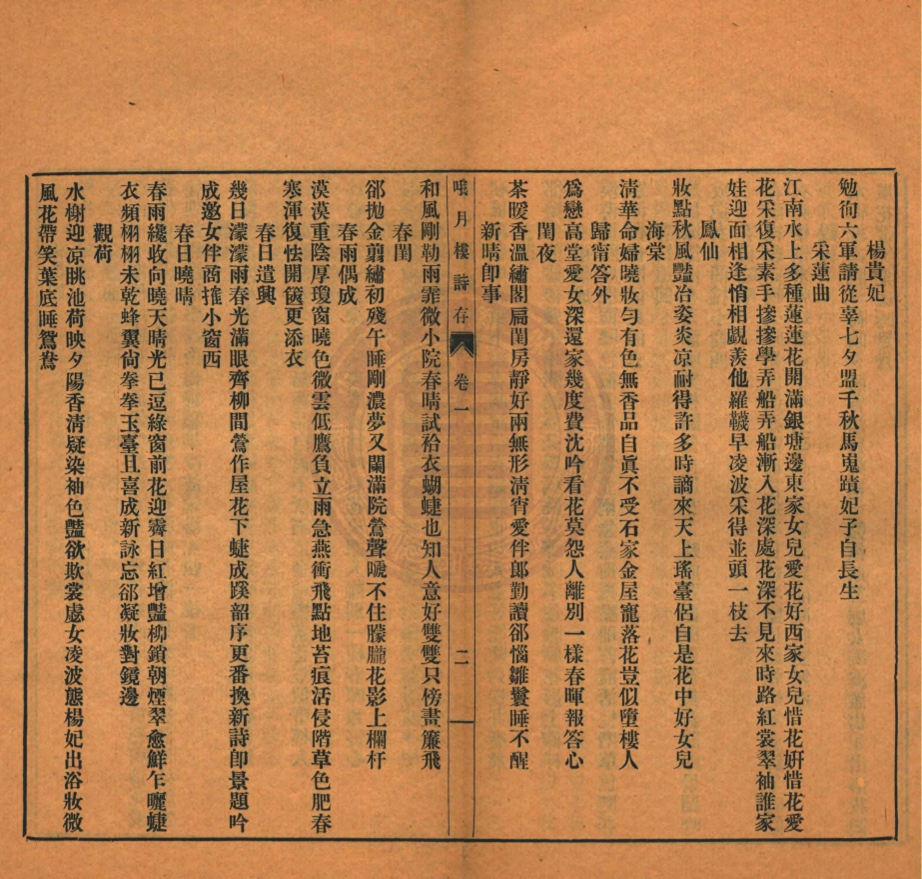 楊貴妃
勉徇六軍請從辜七夕盟千秋馬嵬蹟妃子自長生
采蓮曲
江南水上多種蓮蓮花開滿銀塘邊東家女兒愛花好西家女兒惜花姸惜花愛
花采復采素手摻摻學弄船弄船漸入花深處花深不見來時路紅裳翠袖誰家
娃迎面相逢悄相覷羨他羅韈早凌波采得並頭一枝去
鳳仙
妝點秋風豔冶姿炎凉耐得許多時謫來天上瑤臺侶自是花中好女兒
海棠
清華命婦曉妝勻有色無香品自眞不受石家金屋寵落花豈似墮樓人
歸甯答外
爲戀高堂愛女深還家幾度費沈吟看花莫怨人離別一樣春暉報答心
閨夜
茶暖香溫繡閣扃閨房靜好兩無形淸宵愛伴郎勤讀郤惱雛鬟睡不醒
新晴卽事
哦月樓詩存 卷一 二
和風剛勒雨霏微小院春晴試袷衣蝴蜨也知人意好雙雙只傍畫簾飛
春閨
郤拋金翦繡初殘午睡剛濃夢又闌滿院鶯聲嚦不住朦朧花影上欄杆
春雨偶成
漠漠重陰厚瓊窗曉色微雲低鷹負立雨急燕銜飛點地苔痕活侵階草色肥春
寒渾復怯開篋更添衣
春日遣興
幾日濛濛雨春光滿眼齊柳間鶯作屋花下蜨成蹊韶序更番換新詩卽景題吟
成邀女伴商搉小窗西
春日曉晴
春雨纔收向曉天晴光已逗綠窗前花迎霽日紅增豔柳鎖朝煙翠愈鮮乍曬蜨
衣頻栩栩未乾蜂翼尙拳拳玉臺且喜成新詠忘郤凝妝對鏡邊
觀荷
水榭迎凉眺池荷映夕陽香淸疑染袖色豔欲欺裳處女凌波態楊妃出浴妝微
風花帶笑葉底睡鴛鴦